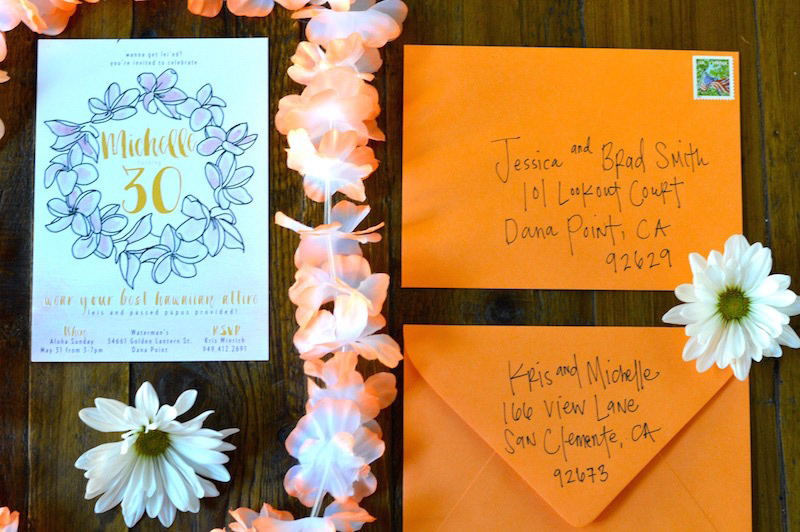 wanna get lei'nd?
you're invited to celebrate
Michelle
turning
30
wear your best hawaiian attire
(leis and passed pupus provided!)
When
Aloha Sunday
May 31 from 3-7pm
Waterman's
34661 Golden Lantern St.
Dana Point
RSVP
Kris Winrich
949.412.2691
Jessica and Brad Smith
101 Lookout Court
Dana Point, CA
92629
Kris and Michelle
166 View Lane
San Clemente, CA
92673